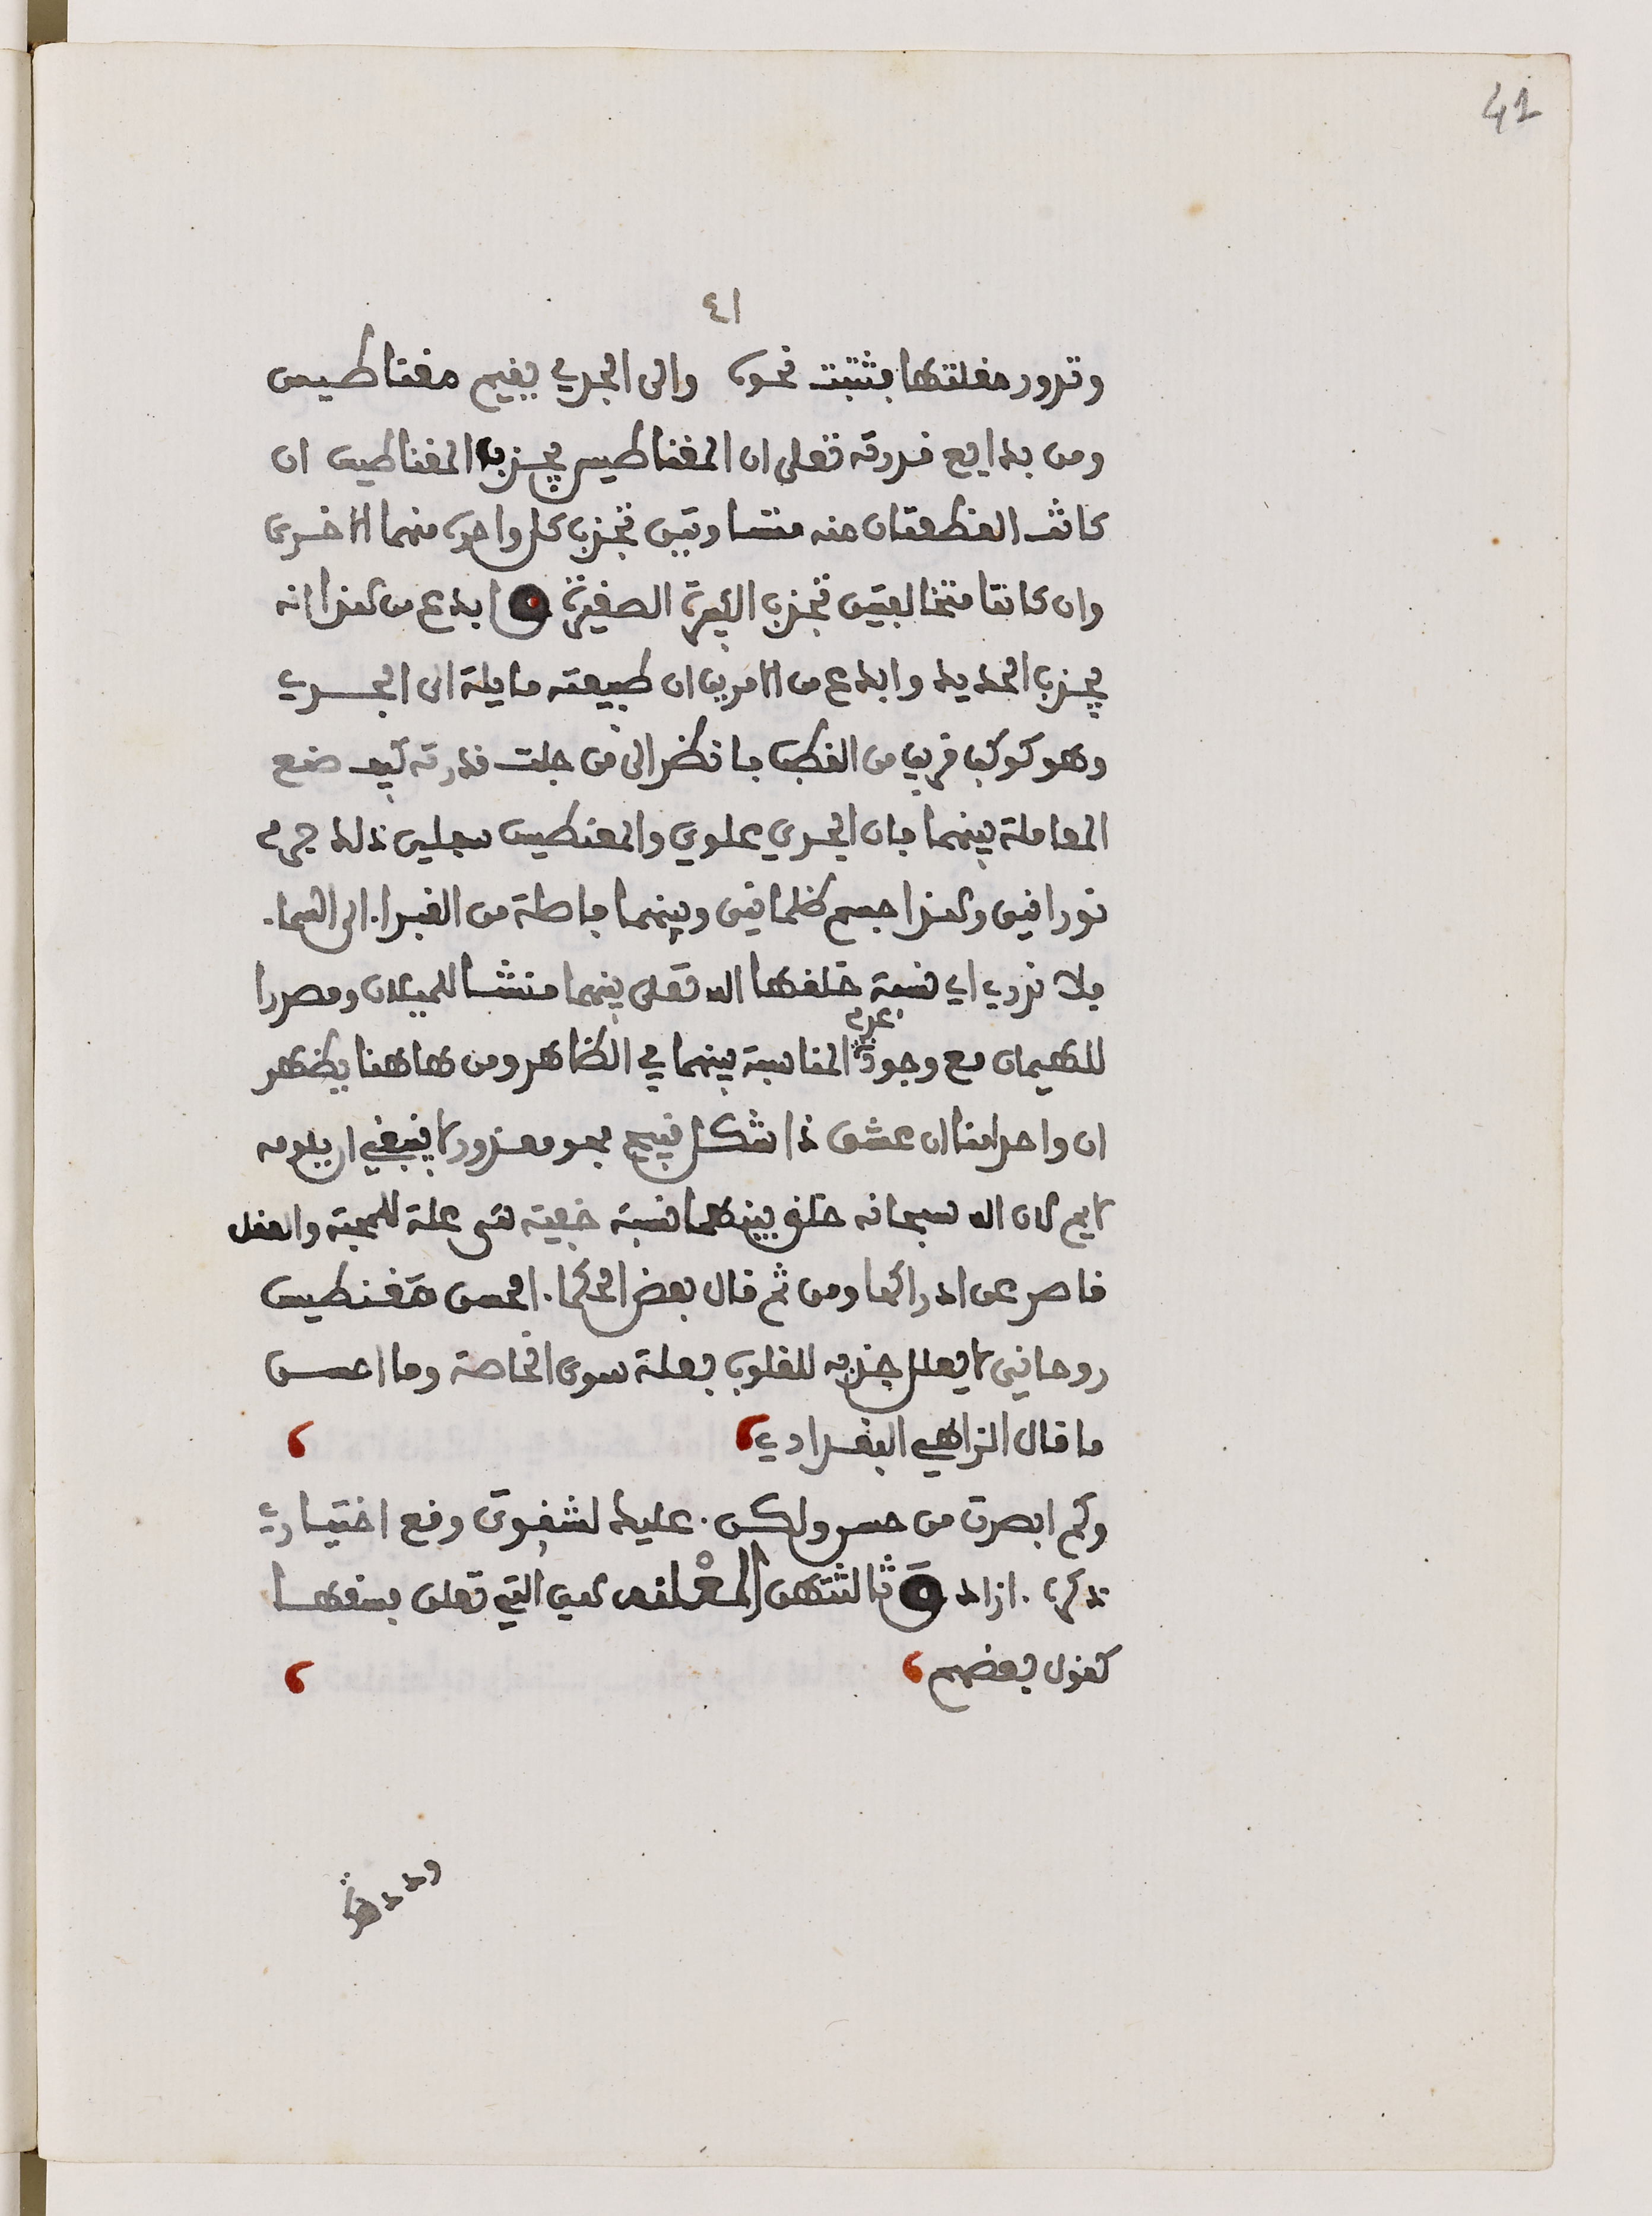 42
٤١
وتدور مقلتها بثبت نحوى والى الجدي يقيم مغناطيس
ومن بدايع قدرته تعلى ان المغناطيس يجذب المغناطيس ان
كانت القطعتان منه متساويتين تجذب كل واحدة منهما الاخرى
وان كانتا متخالفتين تجذب الكبيرة الصغيرة و ابدع من هذا انه
يجذب الحديد وابدع من الامرين ان طبيعته مايلة الى الجدي
وهو كوكب قريب من القطب فانظر الى من جلت قدرته كيف صنع
المعاملة بينهما فان الجدي علوي والمغنطيس سفلى ذلك جرم
نورانى وهذا جسم ظلمانى وبينهما فاصلة من الغبرا. الى السما.
فلا ندري اي نسبة خلقها الله تعلى بينهما منشا للميلان ومصدرا
عدم
للهيمان مع وجود المناسبة بينهما في الظاهر ومن هاهنا يظهر
ان واحدا منا ان عشق ذا شكل قبيح فهو معذور لا ينبغي ان يلومه
لايم لان الله سبحانه خلق بينهما نسبة خفية هى علة للمحبة والعقل
قاصر عن ادراكها ومن ثم قال بعض الحكما. الحسن مغنطيس
روحانى لا يعلل جذبه للقلوب بعلة سوى الخاصة وما احسن
ما قال الزاهي البغدادي
وكم ابصرت من حسن ولكن . عليك لشقوتى وقع اختياري
تذكرة . ازاد و ثالثتهن المغلفه هى التي تعلى بسفها
كقول بعضهم